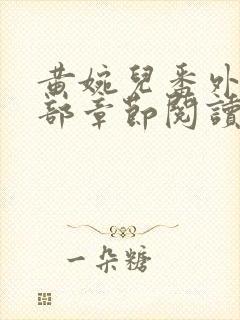 黄婉兒番外
部章節閱讀
一朵糖